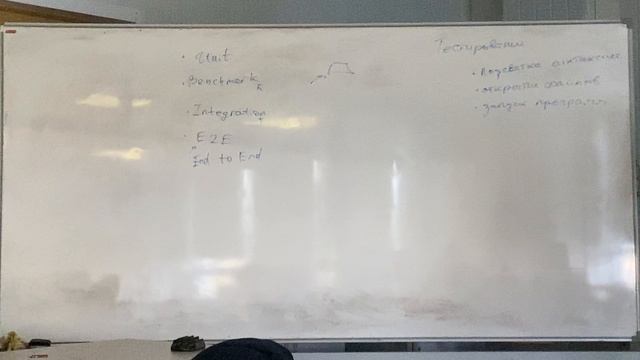 • Unit
• Benchmark
• Integration
• E2E
End to End
Тестирование
• подсветка синтаксиса
• открытие файлов
• запуск программ